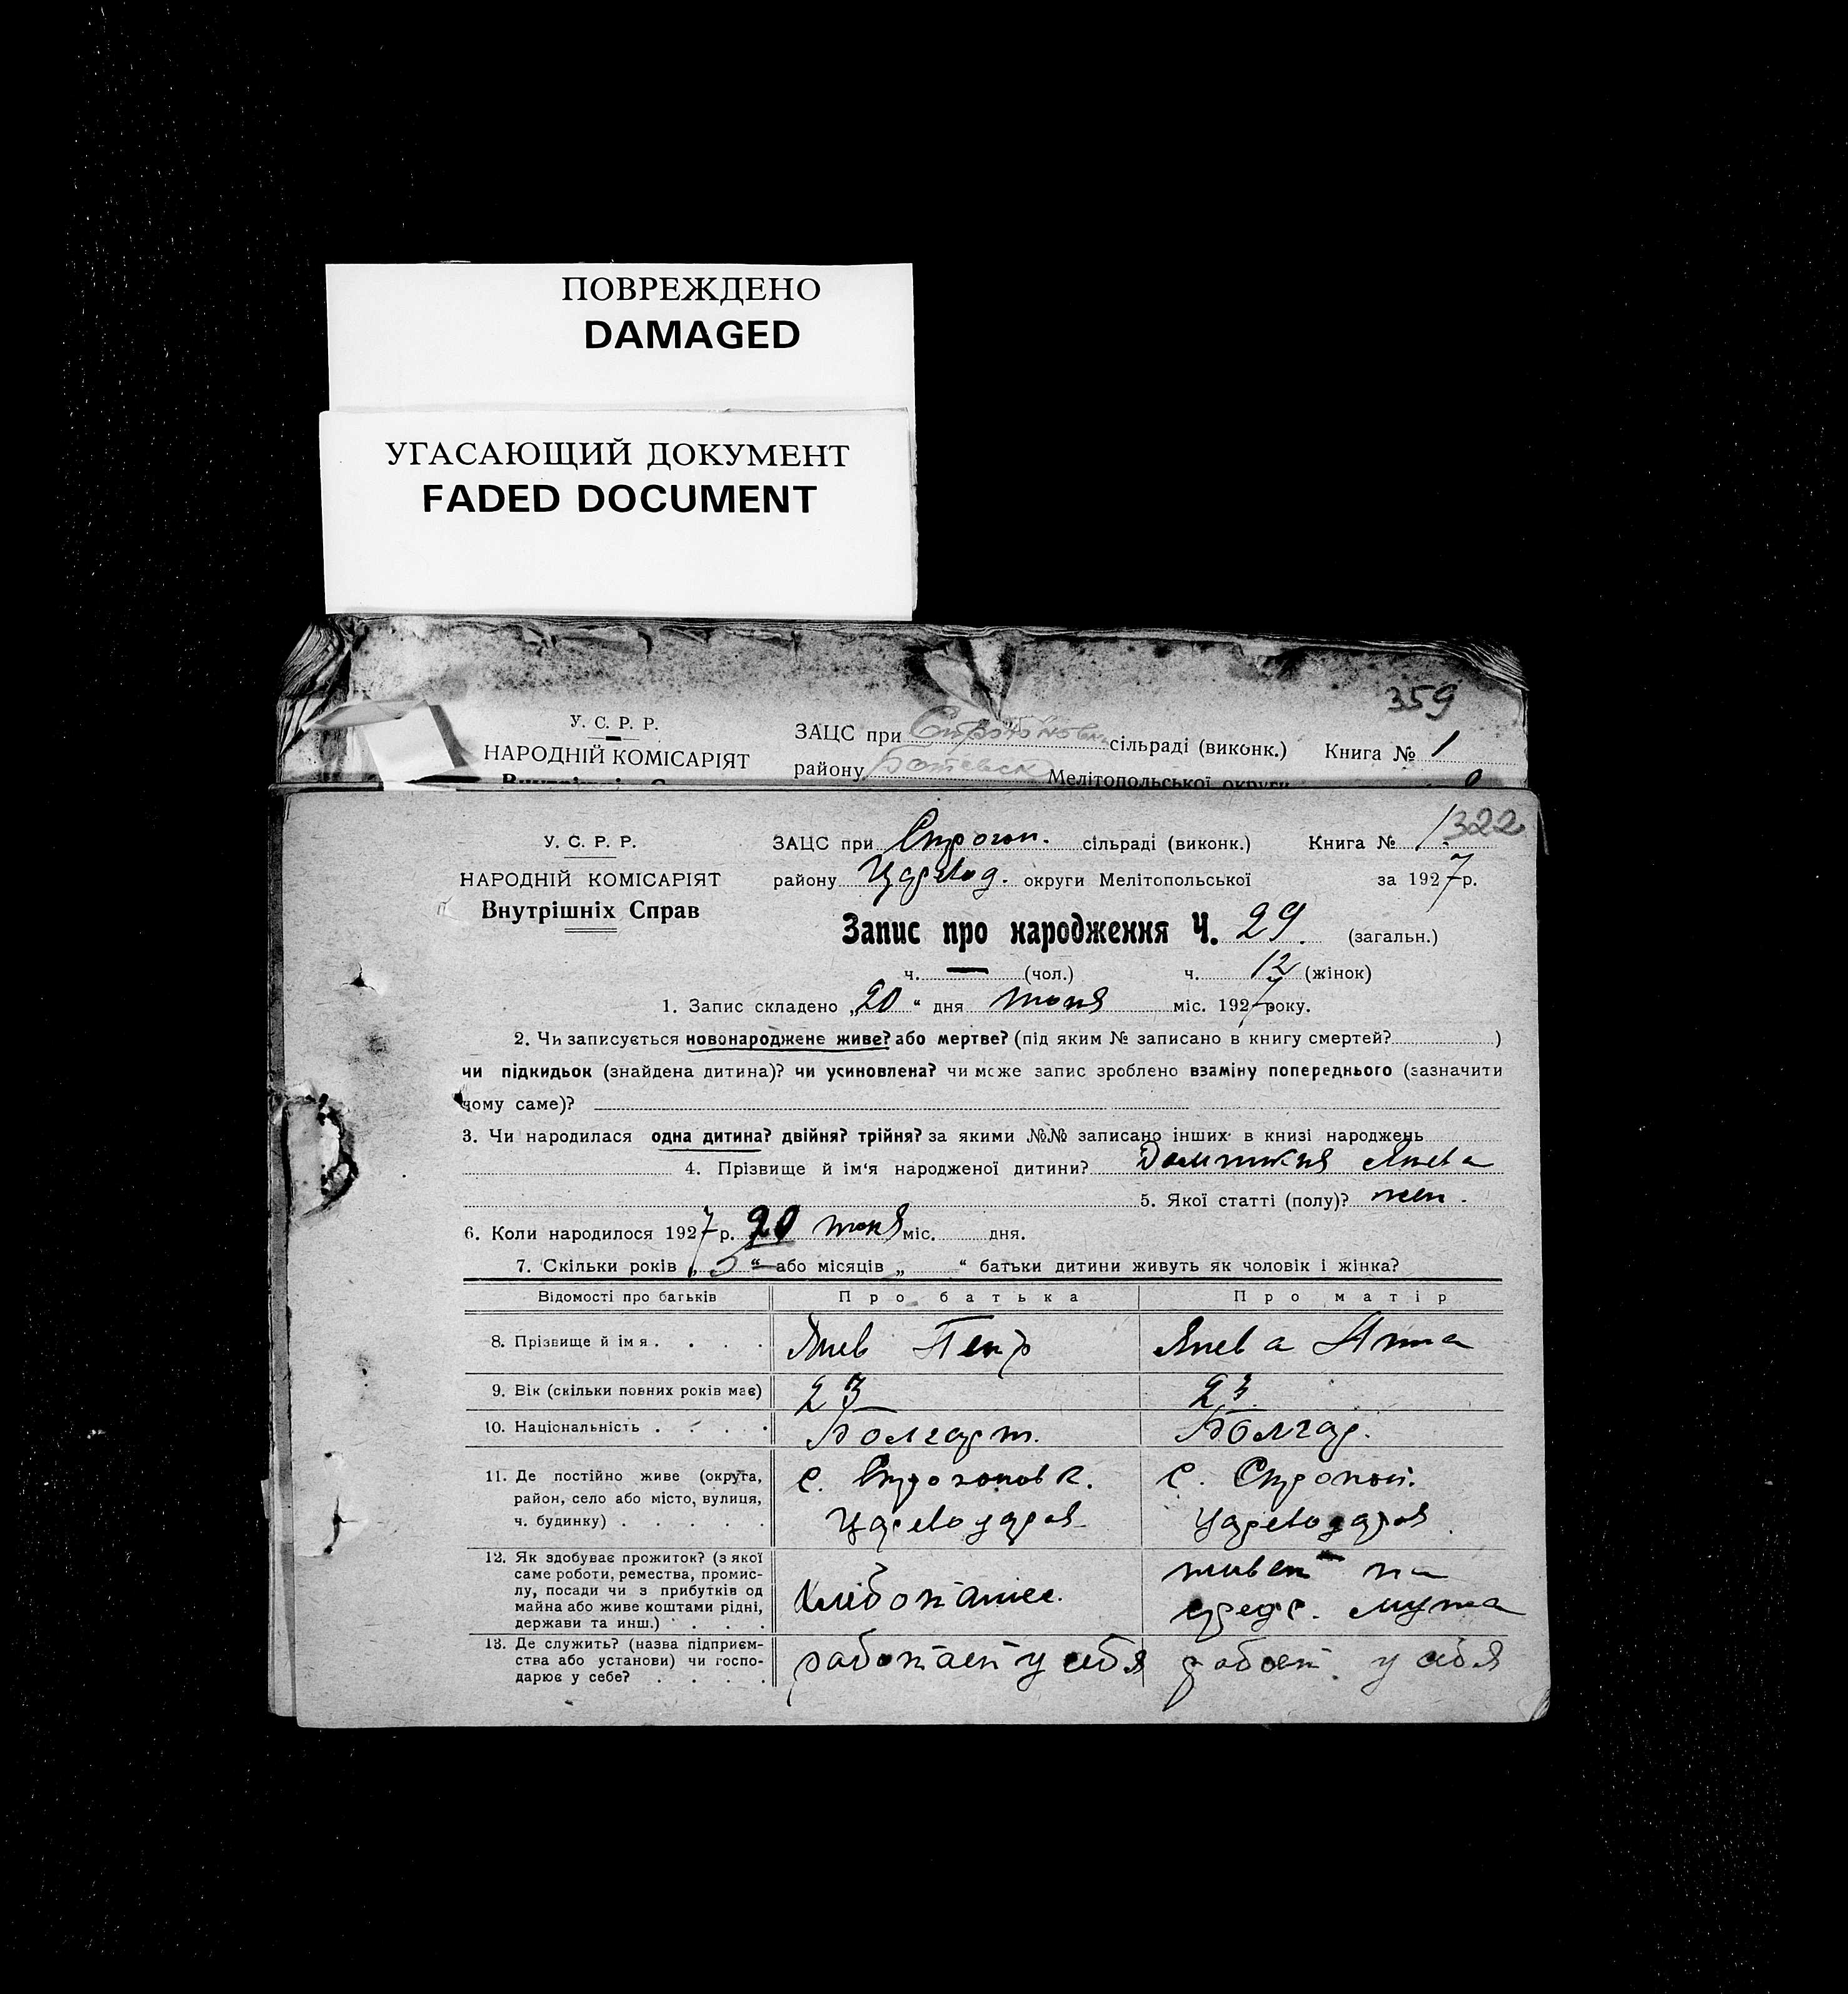 ПОВРЕЖДЕНО
DAMAGED
УГАСАЮЩИЙ ДОКУМЕНТ
FADED DOCUMENT
359
У. С. Р. Р.
НАРОДНІЙ КОМІСАРІЯТ
ЗАЦС при сільраді (виконк.) Книга № 1
району Ботевск Мелітопольської округи
322
У. С. Р. Р.
НАРОДНІЙ КОМІСАРІЯТ
Внутрішніх Справ
ЗАЦС при Строгон. сільраді (виконк.) Книга № 1.
району Царевод. округи Мелітопольської за 1927 р.
Запис про народження Ч. 29. (загальн.)
ч. — (чол.) ч. 12 (жінок)
1. Запис складено „20“ дня июня міс. 1927 року.
2. Чи записується новонароджене живе? або мертве? (під яким № записано в книгу смертей? )
чи підкидьок (знайдена дитина)? чи усиновлена? чи може запис зроблено взаміну попереднього (зазначити
чому саме)?
3. Чи народилася одна дитина? двійня? трійня? за якими №№ записано інших в книзі народжень
4. Прізвище й ім'я народженої дитини? Янева
5. Якої статті (полу)? жен.
6. Коли народилося 1927 р. 20 июня міс. дня.
7. Скільки років „ “ або місяців „ “ батьки дитини живуть як чоловік і жінка?
Відомості про батьків Про батька Про матір
8. Прізвище й ім я . . . . Янев Петр Янева Анна
9. Вік (скільки повних років має) 23 23.
10. Національність . . . . Болгарин. Болгар.
11. Де постійно живе (округа,
район, село або місто, вулиця,
ч. будинку) . . . . .
с. Строгоновк.
Цареводаров
с. Строгон.
Цареводаров
12. Як здобуває прожиток? (з якої
саме роботи, ремества, промис-
лу, посади чи з прибутків од
майна або живе коштами рідні,
держави та инш.) . . . .
Хлебопашес.
живет на
средс. мужа
13. Де служить? (назва підприєм-
ства або установи) чи госпо-
дарює у себе? . . . .
работает у себя
работ. у себя